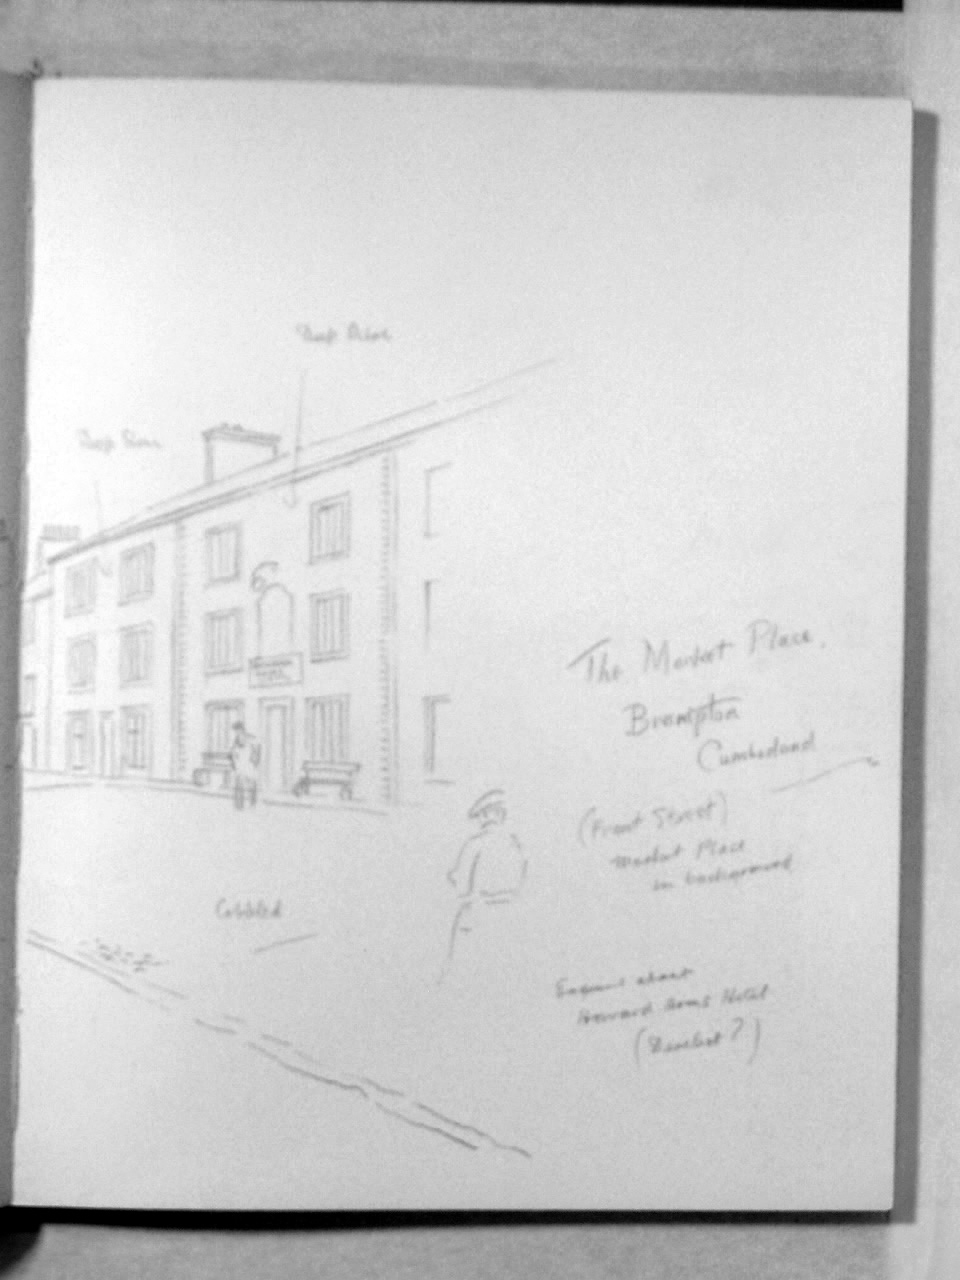 Deep
Deep
The Market Place,
Brampton
Cumberland
(Front Street)
Market Place
in background
Cobbled
Enquire about
Howard Arms Hotel
(Derelict?)